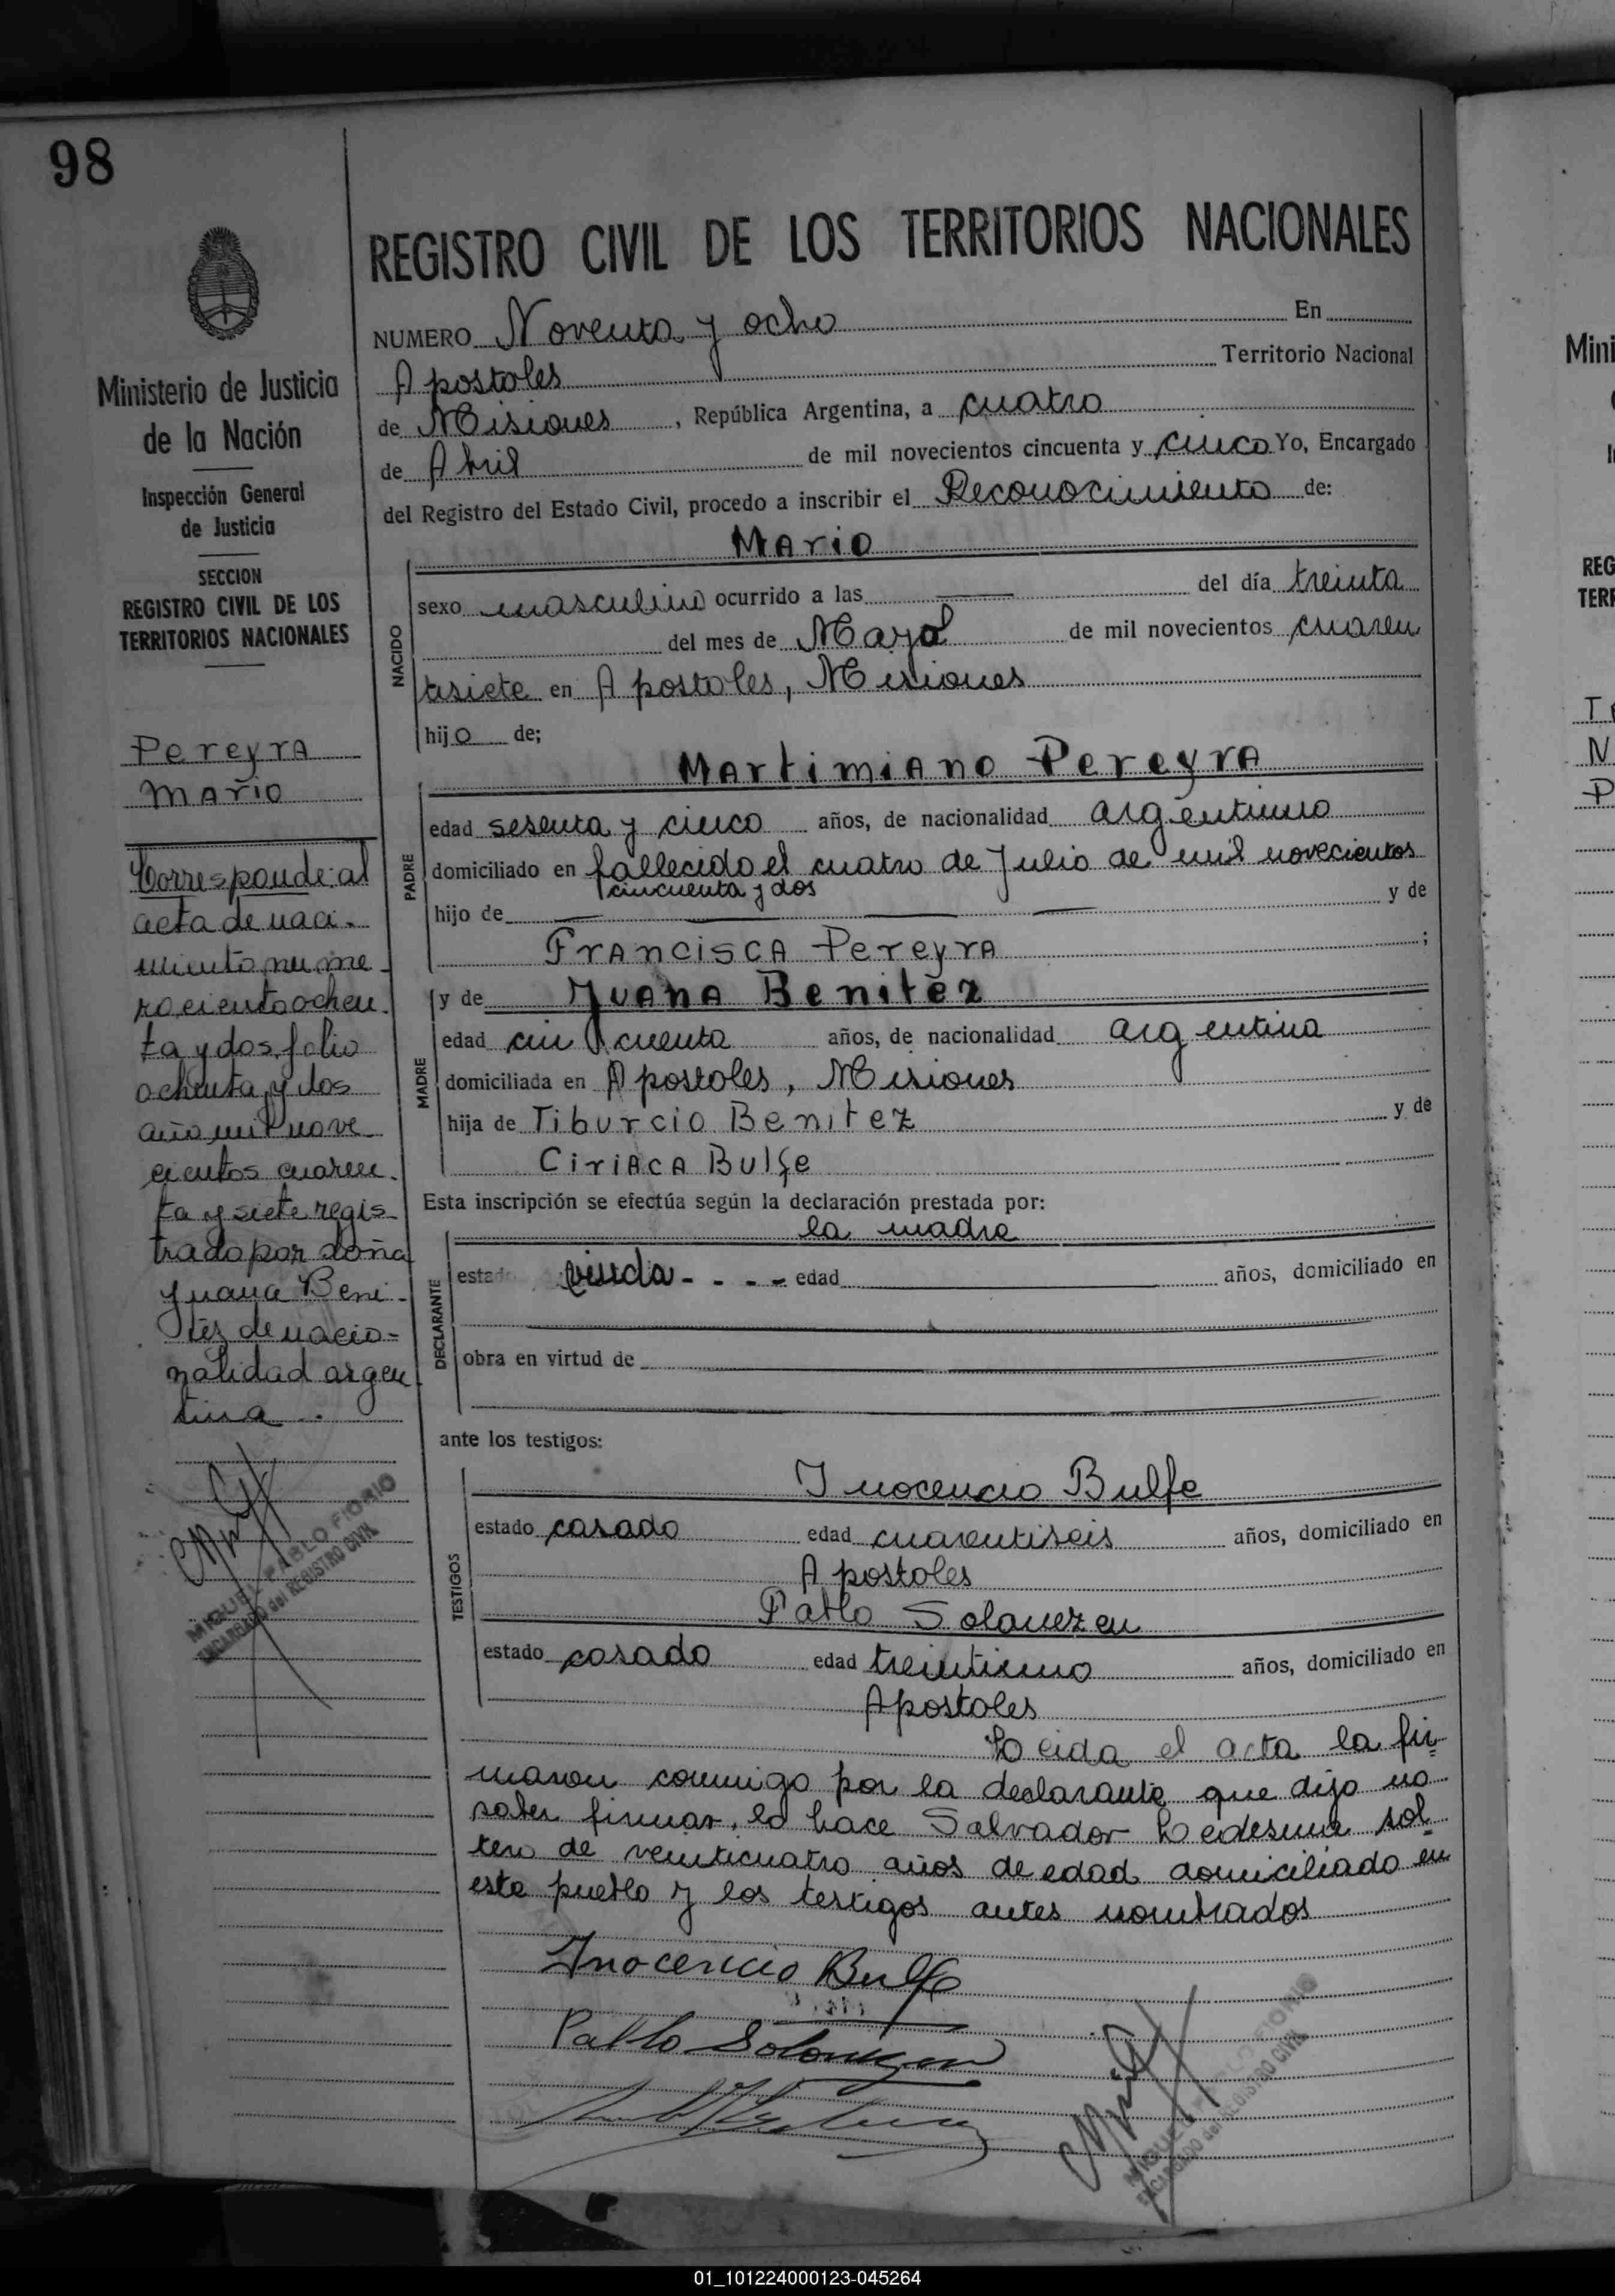 98
Ministerio de Justicia
de la Nación
Inspección General
de Justicia
SECCION
REGISTRO CIVIL DE LOS
TERRITORIOS NACIONALES
Pereyra
Mario
Corresponde al
acta de naci-
miento nume-
ro ciento ochen-
ta y dos, folio
ochenta y dos
año mil nove
cientos cuaren-
ta y siete regis-
trado por doña
Juana Beni-
tez de nacio-
nalidad argen
tina.
MIGUEL PABLO FIORIO
ENCARGADO del REGISTRO CIVIL
REGISTRO CIVIL DE LOS TERRITORIOS NACIONALES
NUMERO Noventa y ocho En
Apostoles Territorio Nacional
de Misiones, República Argentina, a cuatro
de Abril de mil novecientos cincuenta y cinco Yo, Encargado
del Registro del Estado Civil, procedo a inscribir el Reconocimiento de:
Mario
NACIDO
sexo masculino ocurrido a las del día treinta
del mes de Mayo de mil novecientos cuaren
tisiete en Apostoles, Misiones
hijo de;
Martimiano Pereyra
PADRE
edad sesenta y cinco años, de nacionalidad argentino
domiciliado en fallecido el cuatro de Julio de mil novecientos
cincuenta y dos
hijo de y de
Francisca Pereyra ;
y de Juana Benitez
MADRE
edad cincuenta años, de nacionalidad argentina
domiciliada en Apostoles, Misiones
hija de Tiburcio Benitez y de
Ciriaca Bulfe
Esta inscripción se efectúa según la declaración prestada por:
la madre
DECLARANTE
estado viuda - - - - edad años, domiciliado en
obra en virtud de
ante los testigos:
TESTIGOS
Inocencio Bulfe
estado casado edad cuarentiseis años, domiciliado en
Apostoles
Pablo Solanezen
estado casado edad treintiuno años, domiciliado en
Apostoles
Leida el acta la fir-
maron conmigo por la declarante que dijo no
saber firmar, lo hace Salvador Ledesma sol-
tero de veinticuatro años de edad domiciliado en
este pueblo y los testigos antes nombrados
Inocencio Bulfe
Pablo
MIGUEL PABLO FIORIO
ENCARGADO del REGISTRO CIVIL
Mini
REG
TERR
01_101224000123-045264